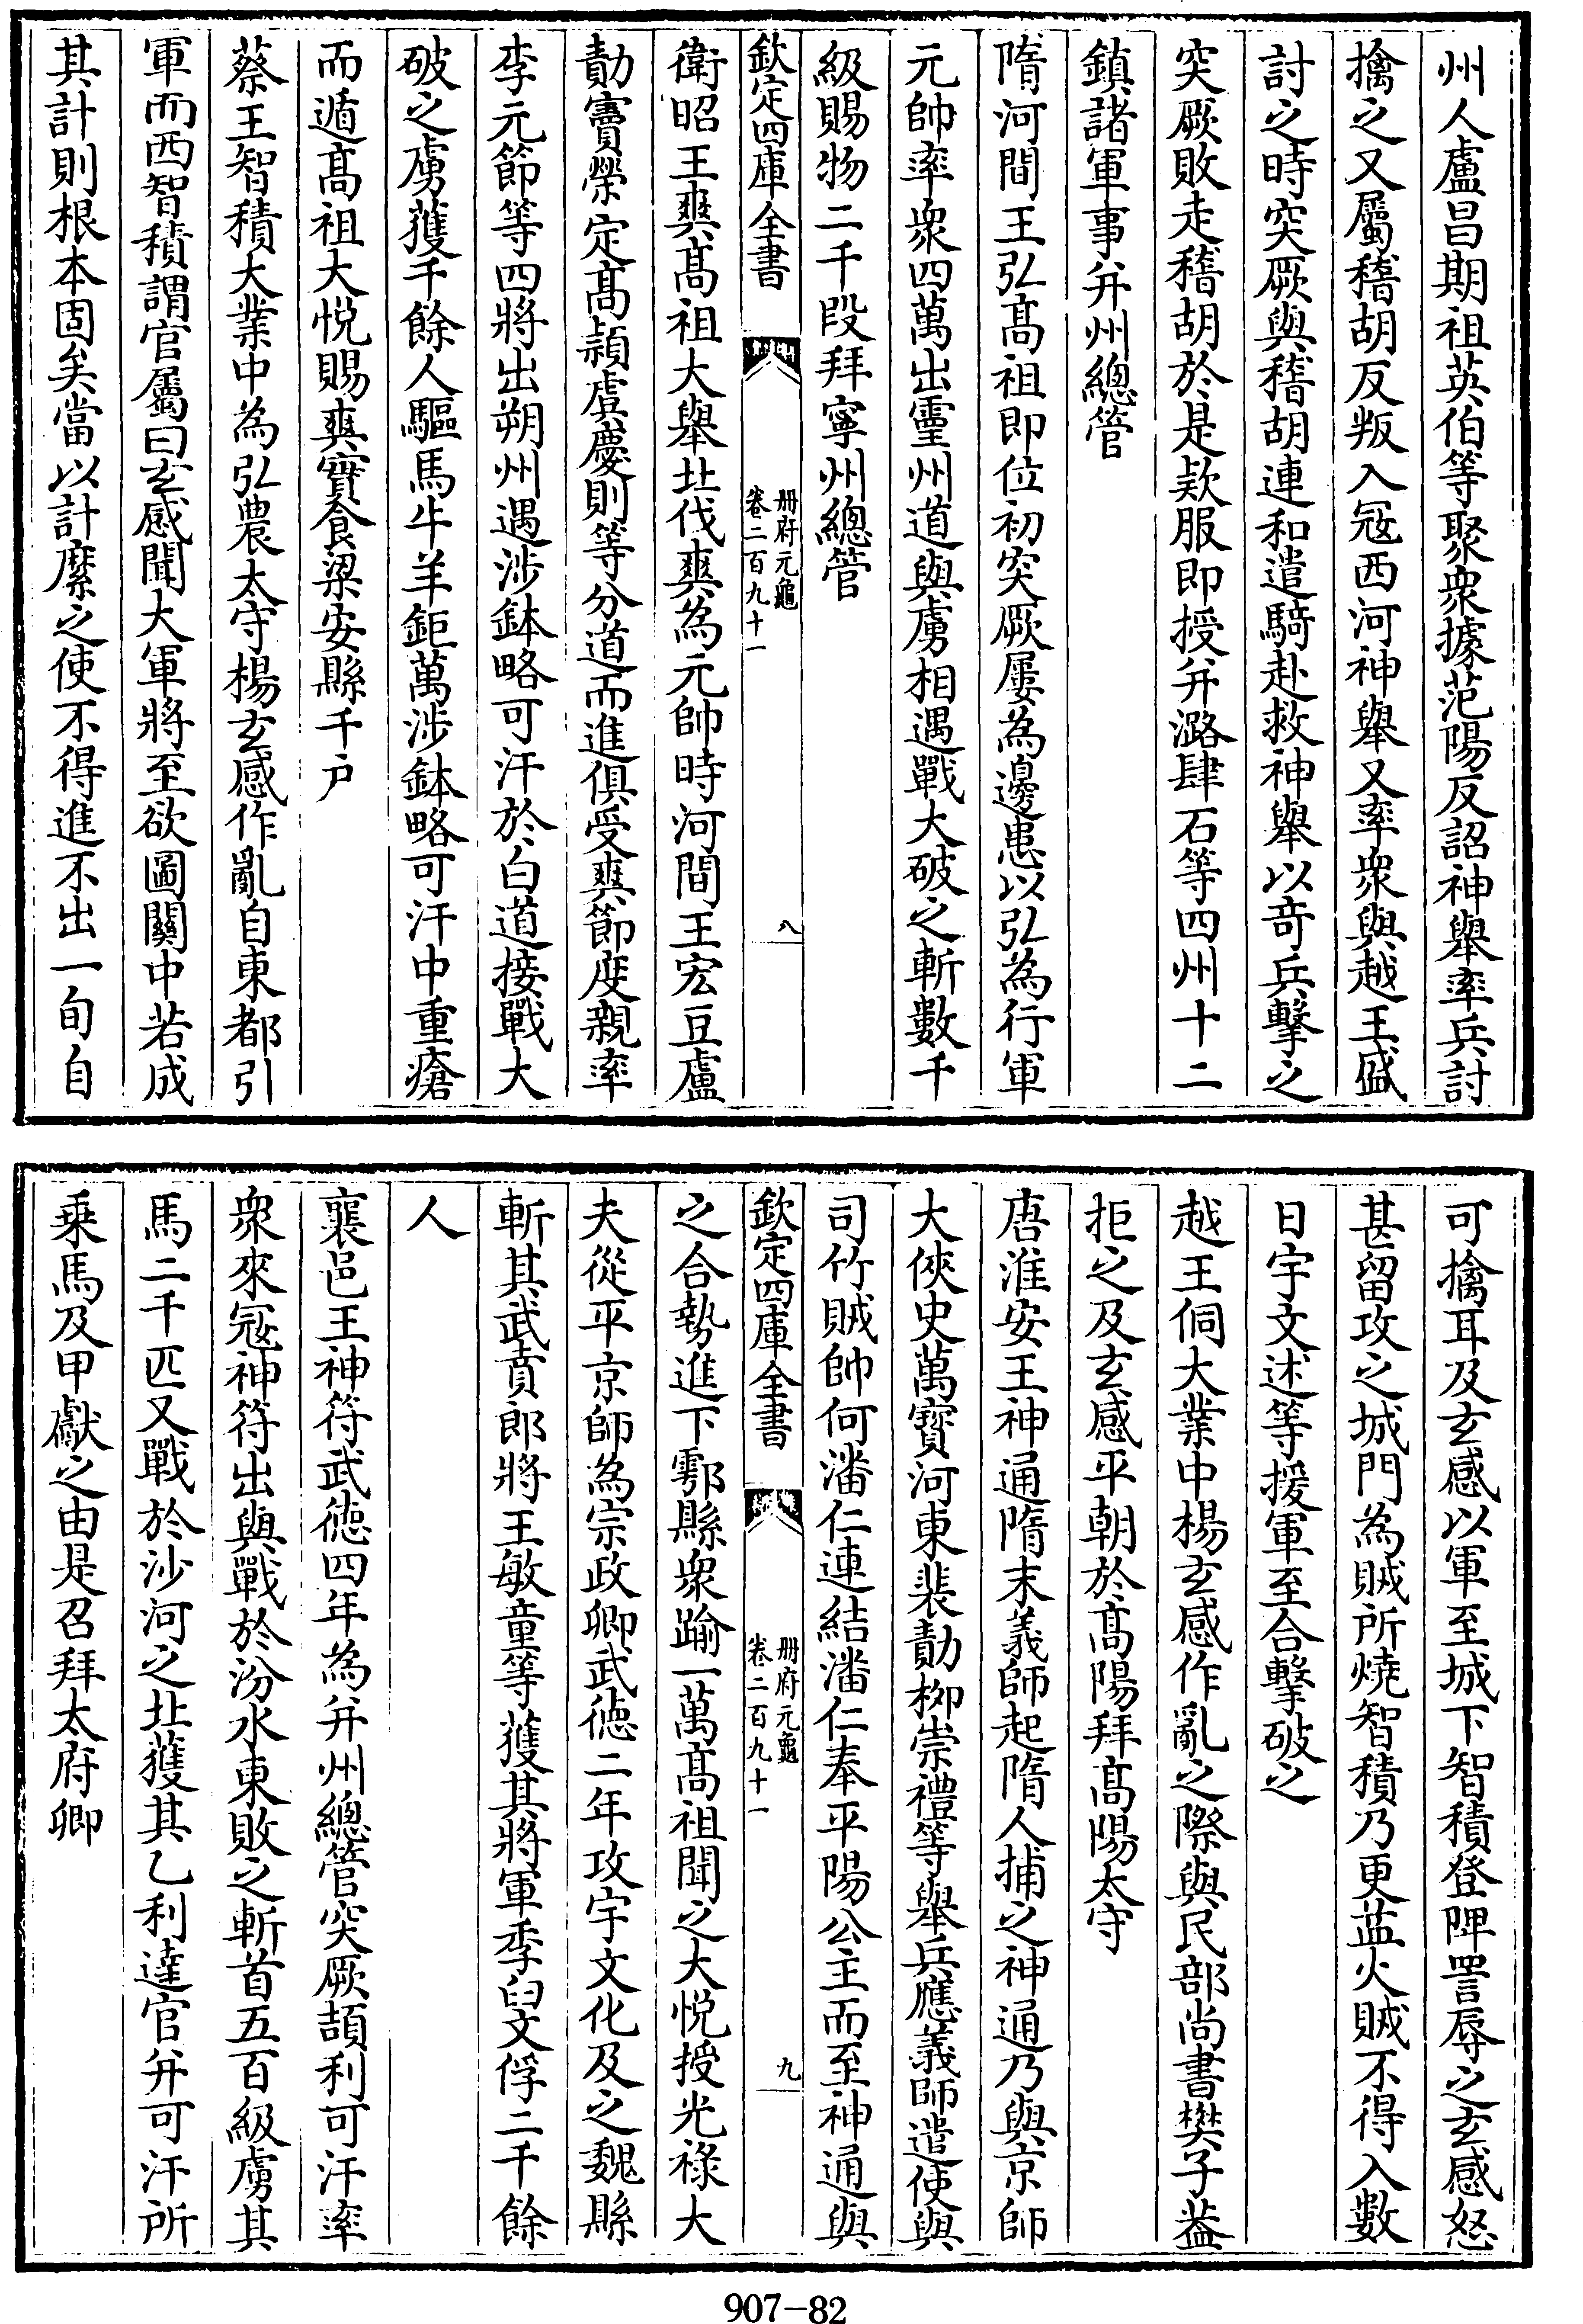 州人盧昌期祖英伯等聚衆據范陽反詔神舉率兵討
擒之又屬稽胡反叛入冦西河神舉又率衆與越王盛
討之時突厥與稽胡連和遣騎赴救神舉以奇兵擊之
突厥敗走稽胡於是欵服即授并潞肆石等四州十二
鎮諸軍事并州總管
隋河間王弘髙祖即位初突厥屢為邊患以弘為行軍
元帥率衆四萬出靈州道與虜相遇戰大破之斬數千
級賜物二千段拜寧州總管
欽定四庫全書
册府元龜
卷二百九十一
八
衛昭王爽髙祖大舉北伐爽為元帥時河間王宏豆盧
勣竇榮定髙熲虞慶則等分道而進俱受爽節度親率
李元節等四將出朔州遇涉鉢略可汗於白道接戰大
破之虜獲千餘人驅馬牛羊鉅萬涉鉢略可汗中重瘡
而遁髙祖大悦賜爽實食梁安縣千户
蔡王智積大業中為弘農太守楊玄感作亂自東都引
軍而西智積謂官屬曰玄感聞大軍將至欲圖關中若成
其計則根本固矣當以計縻之使不得進不出一旬自
可擒耳及玄感以軍至城下智積登陴詈辱之玄感怒
甚留攻之城門為賊所燒智積乃更益火賊不得入數
日宇文述等援軍至合擊破之
越王侗大業中楊玄感作亂之際與民部尚書樊子葢
拒之及玄感平朝於髙陽拜髙陽太守
唐淮安王神通隋末義師起隋人捕之神通乃與京師
大俠史萬寳河東裴勣栁崇禮等舉兵應義師遣使與
司竹賊帥何潘仁連結潘仁奉平陽公主而至神通與
欽定四庫全書
册府元龜
卷二百九十一
九
之合勢進下鄠縣衆踰一萬髙祖聞之大悦授光祿大
夫從平京師為宗政卿武徳二年攻宇文化及之魏縣
斬其武賁郎將王敏童等獲其將軍季臼文俘二千餘
人
襄邑王神符武徳四年為并州總管突厥頡利可汗率
衆來冦神符出與戰於汾水東敗之斬首五百級虜其
馬二千匹又戰於沙河之北獲其乙利達官并可汗所
乗馬及甲獻之由是召拜太府卿
907-82